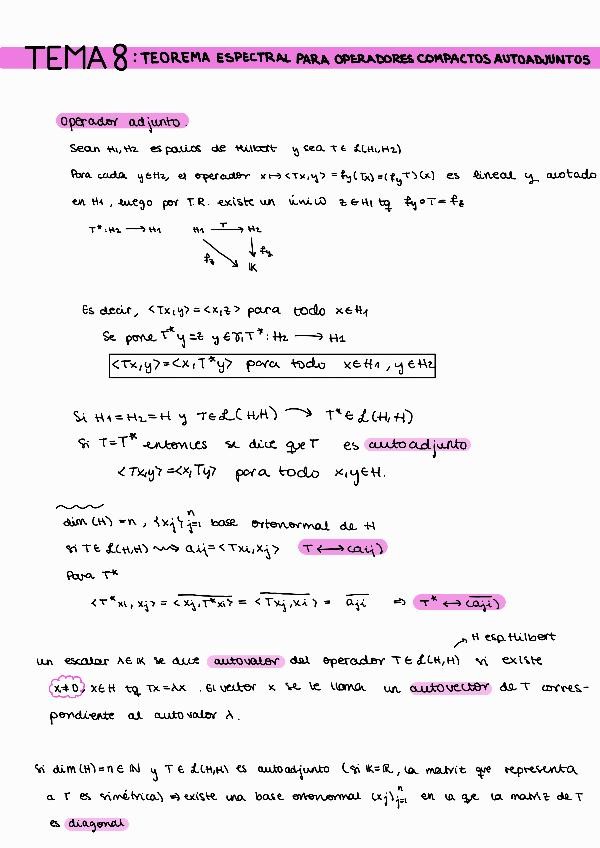 TEMA 8: TEOREMA ESPECTRAL PARA OPERADORES COMPACTOS AUTOADJUNTOS
Operador adjunto.
Sean H1,H2 espacios de Hilbert y sea T∈ L(H1,H2)
Para cada y∈H2, el operador x↦<Tx,y> = fy(Tx)=(fyT)(x) es lineal y acotado
en H1, luego por T.R. existe un único z∈H1 tq fy∘T=fz
T*:H2 → H1 H1 T→ H2
fz fy
IK
Es decir, <Tx,y>=<x,z> para todo x∈H1
Se pone T*y=z y T*:H2 → H1
<Tx,y>=<x,T*y> para todo x∈H1, y∈H2
Si H1=H2=H y T∈L(H,H) → T*∈L(H,H)
Si T=T* entonces se dice que T es autoadjunto
<Tx,y>=<x,Ty> para todo x,y∈H.
dim(H)=n, {xj}ⁿj=1 base ortonormal de H
si T∈L(H,H) ⇝ aij=<Txi,xj> T↔(aij)
Para T*
<T*xi,xj> = \overline{<xj,T*xi>} = \overline{<Txj,xi>} = \overline{aji} ⇒ T*↔(\overline{aji})
H esp. Hilbert
un escalar λ∈IK se dice autovalor del operador T∈L(H,H) si existe
x≠0, x∈H tq Tx=λx. El vector x se le llama un autovector de T corres-
pondiente al autovalor λ.
Si dim(H)=n∈IN y T∈L(H,H) es autoadjunto (si IK=IR, la matriz que representa
a T es simétrica) ⇒ existe una base ortonormal (xj)ⁿj=1 en la que la matriz de T
es diagonal